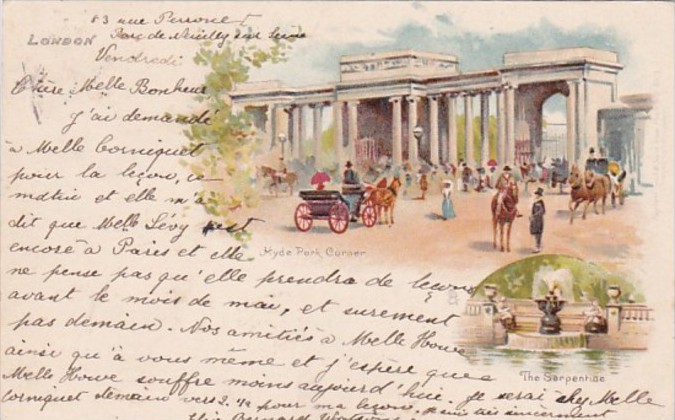 83 rue Perronet
LONDON
Parc de Neuilly sur Seine
Vendredi
Chère Melle Bonheur
j'ai demandé
à Melle Corniquet
pour la leçon, ce
matin et elle m'a
dit que Melle Lévy est
encore à Paris et elle
Hyde Park Corner
ne pense pas qu'elle prendra de leçons
avant le mois de mai, et surement
pas demain. Nos amitiés à Melle Howe
ainsi qu'à vous même et j'espère que
The Serpentine
Melle Howe souffre moins aujourd'hui. Je serai chez Melle
Corniquet demain vers 2.½ pour ma leçon.